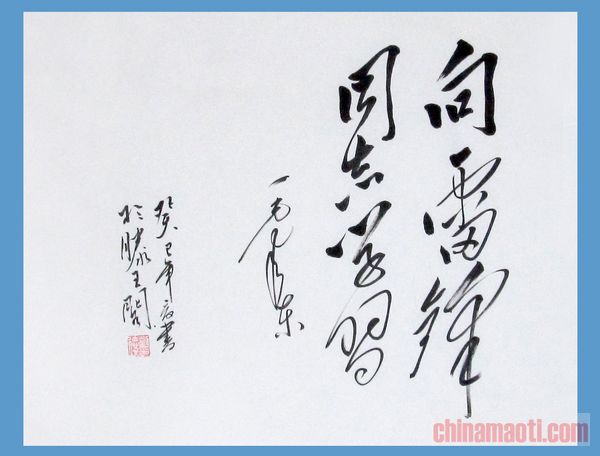 向雷锋
同志学习
毛泽东
癸巳年 书
於滕王阁
chinamaoti.com